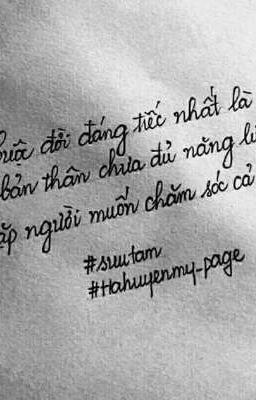 đời đáng tiếc nhất là
bản thân chưa đủ năng
người muốn chăm sóc cả
#suutam
#Hahuyenmy-page